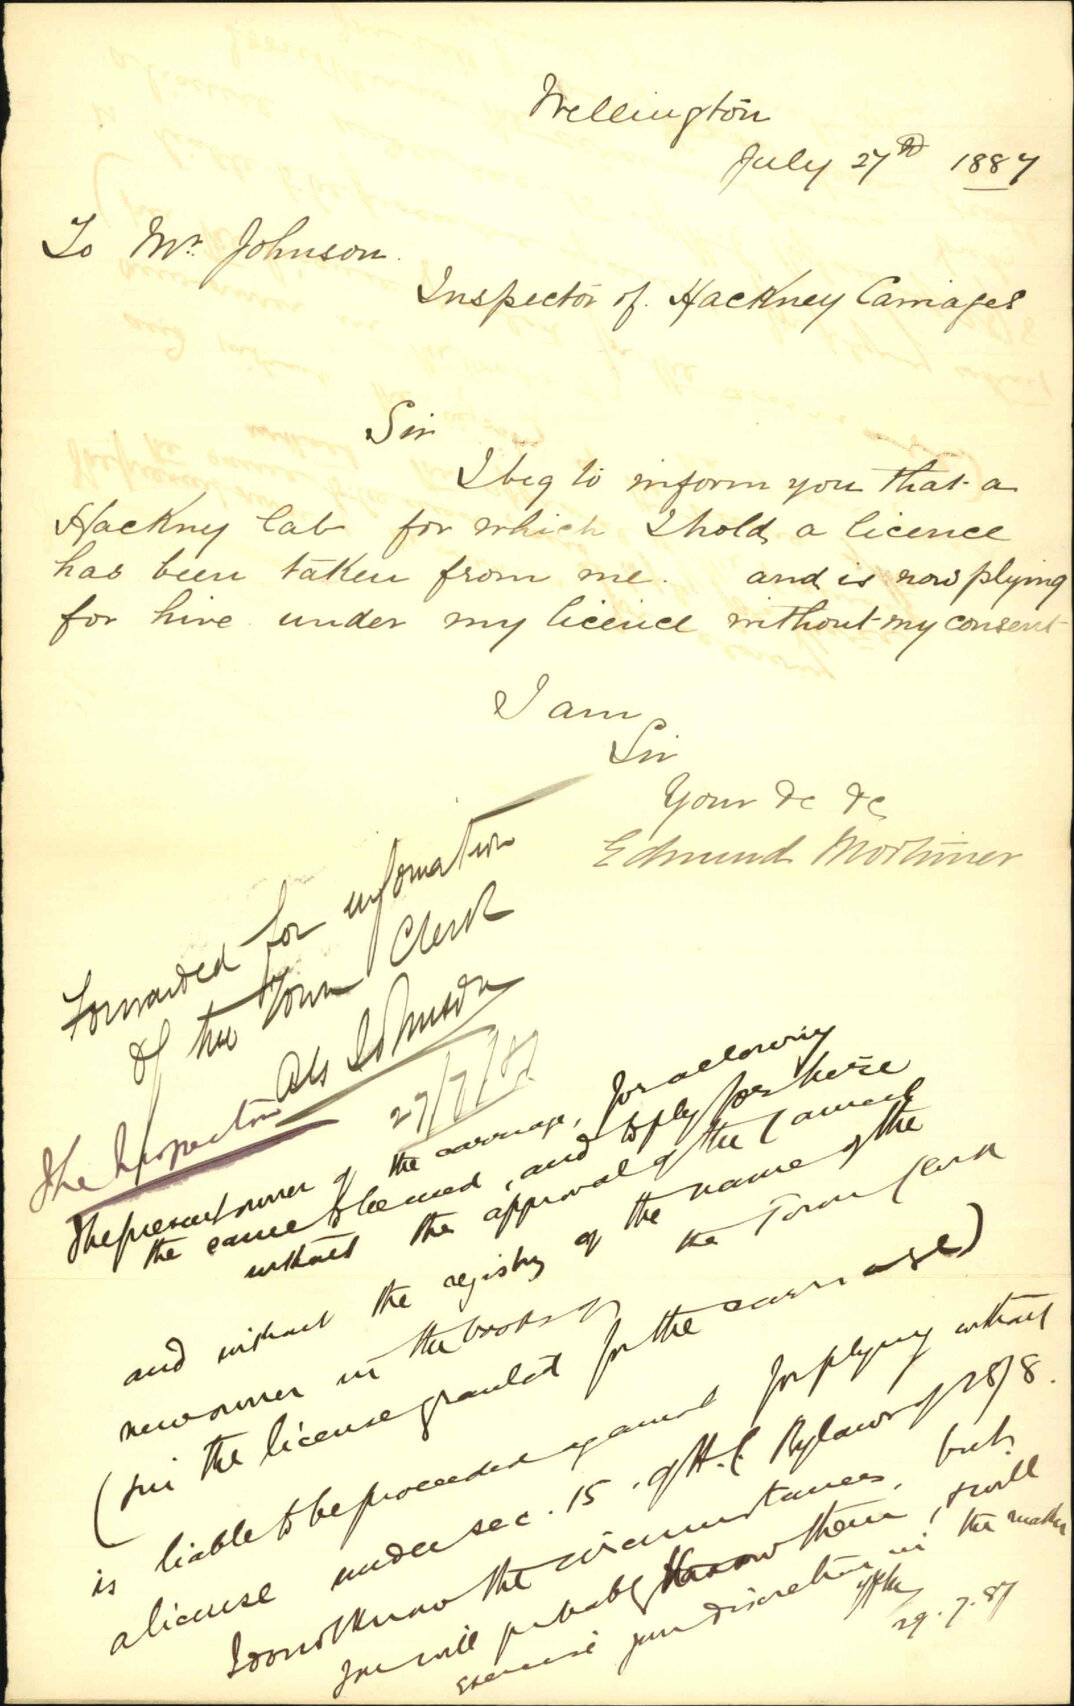 Wellington
July 27th 1887
To Mr. Johnson.
Inspector of Hackney Carriages
Sir
I beg to inform you that a
Hackney Cab for which I hold a licence
has been taken from me. and is now plying
for hire under my licence without my consent
I am
Sir
Your &c &c
Edmund Mortimer
Forwarded for information
of the Town Clerk
Johnson
27/7/87
The Inspector
The present owner of the carriage, for allowing
the same to be used, and to ply for hire
without the approval of the Council
and without the registry of the name of the
new owner in the books of the Town Clerk
(in the license granted for the carriage)
is liable to be proceeded against for plying without
a license under sec. 15. of H.C. Bylaws of 1878.
I do not know the circumstances, but
you will probably know them, & will
exercise your discretion in the matter
29.7.87